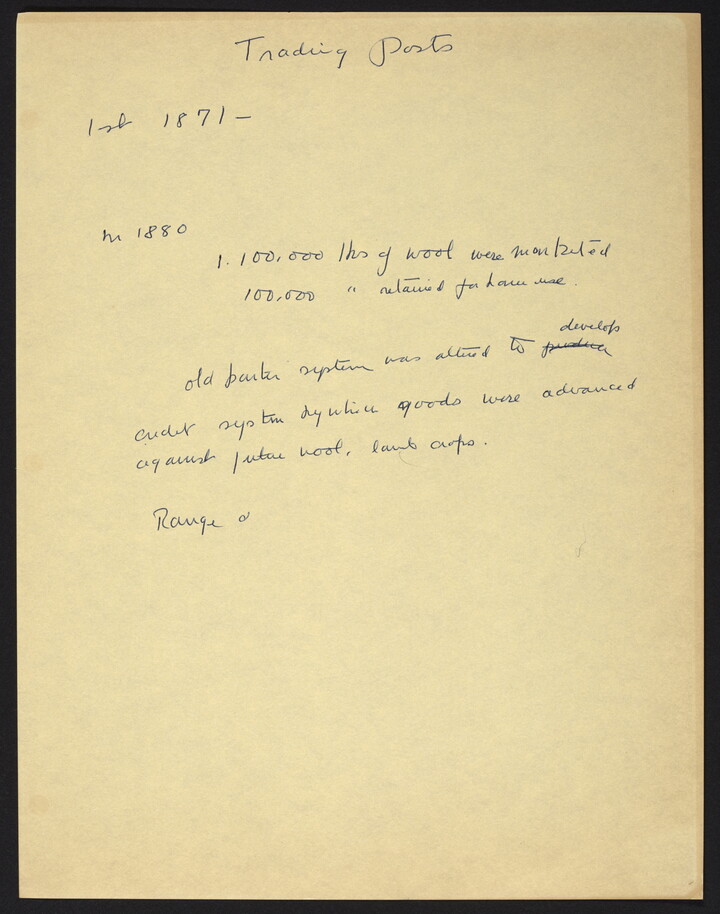 Trading Posts
1st 1871-
In 1880
1.100,000 lbs of wool were marketed
100,000 " retained for home use.
develop
old barter system was altered to produce
credit system by which goods were advanced
against future wool, lamb crops.
Range o